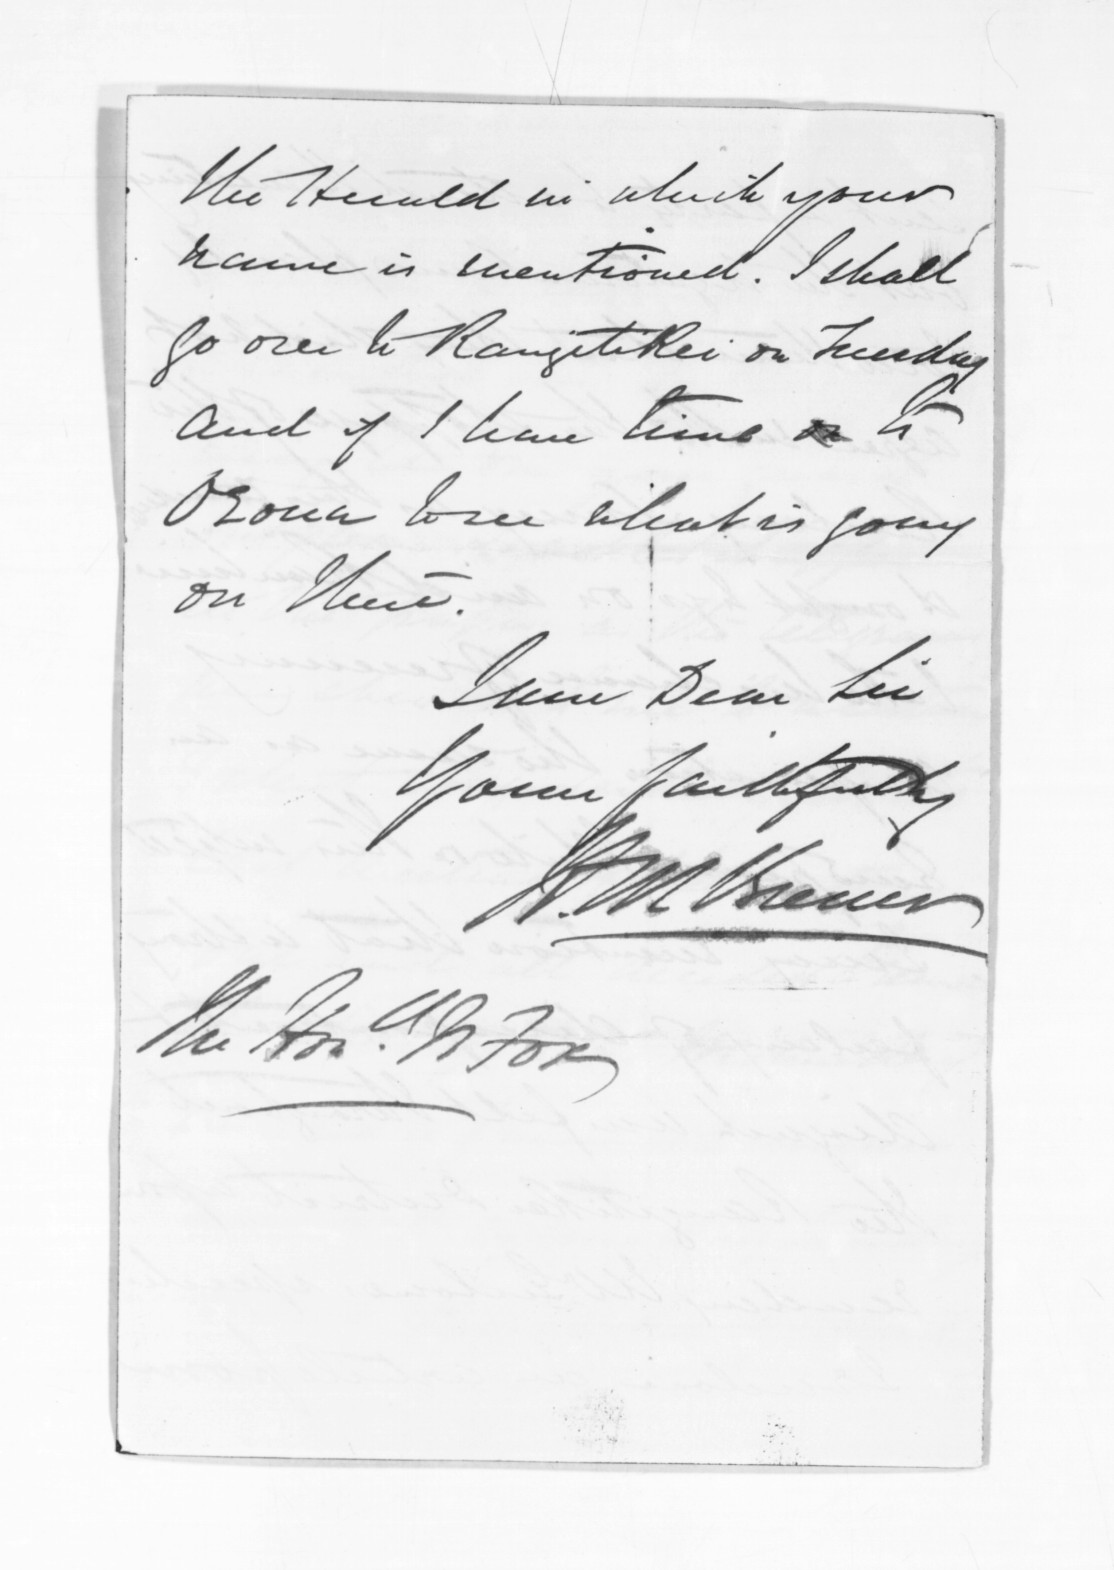 the Herald in which your
name is mentioned. I shall
go over to Rangitikei on Tuesday
and if I have time to
Oroua to see what is going
on there.
I am Dear Sir
Yours faithfully
W. M
The Hon. W Fox